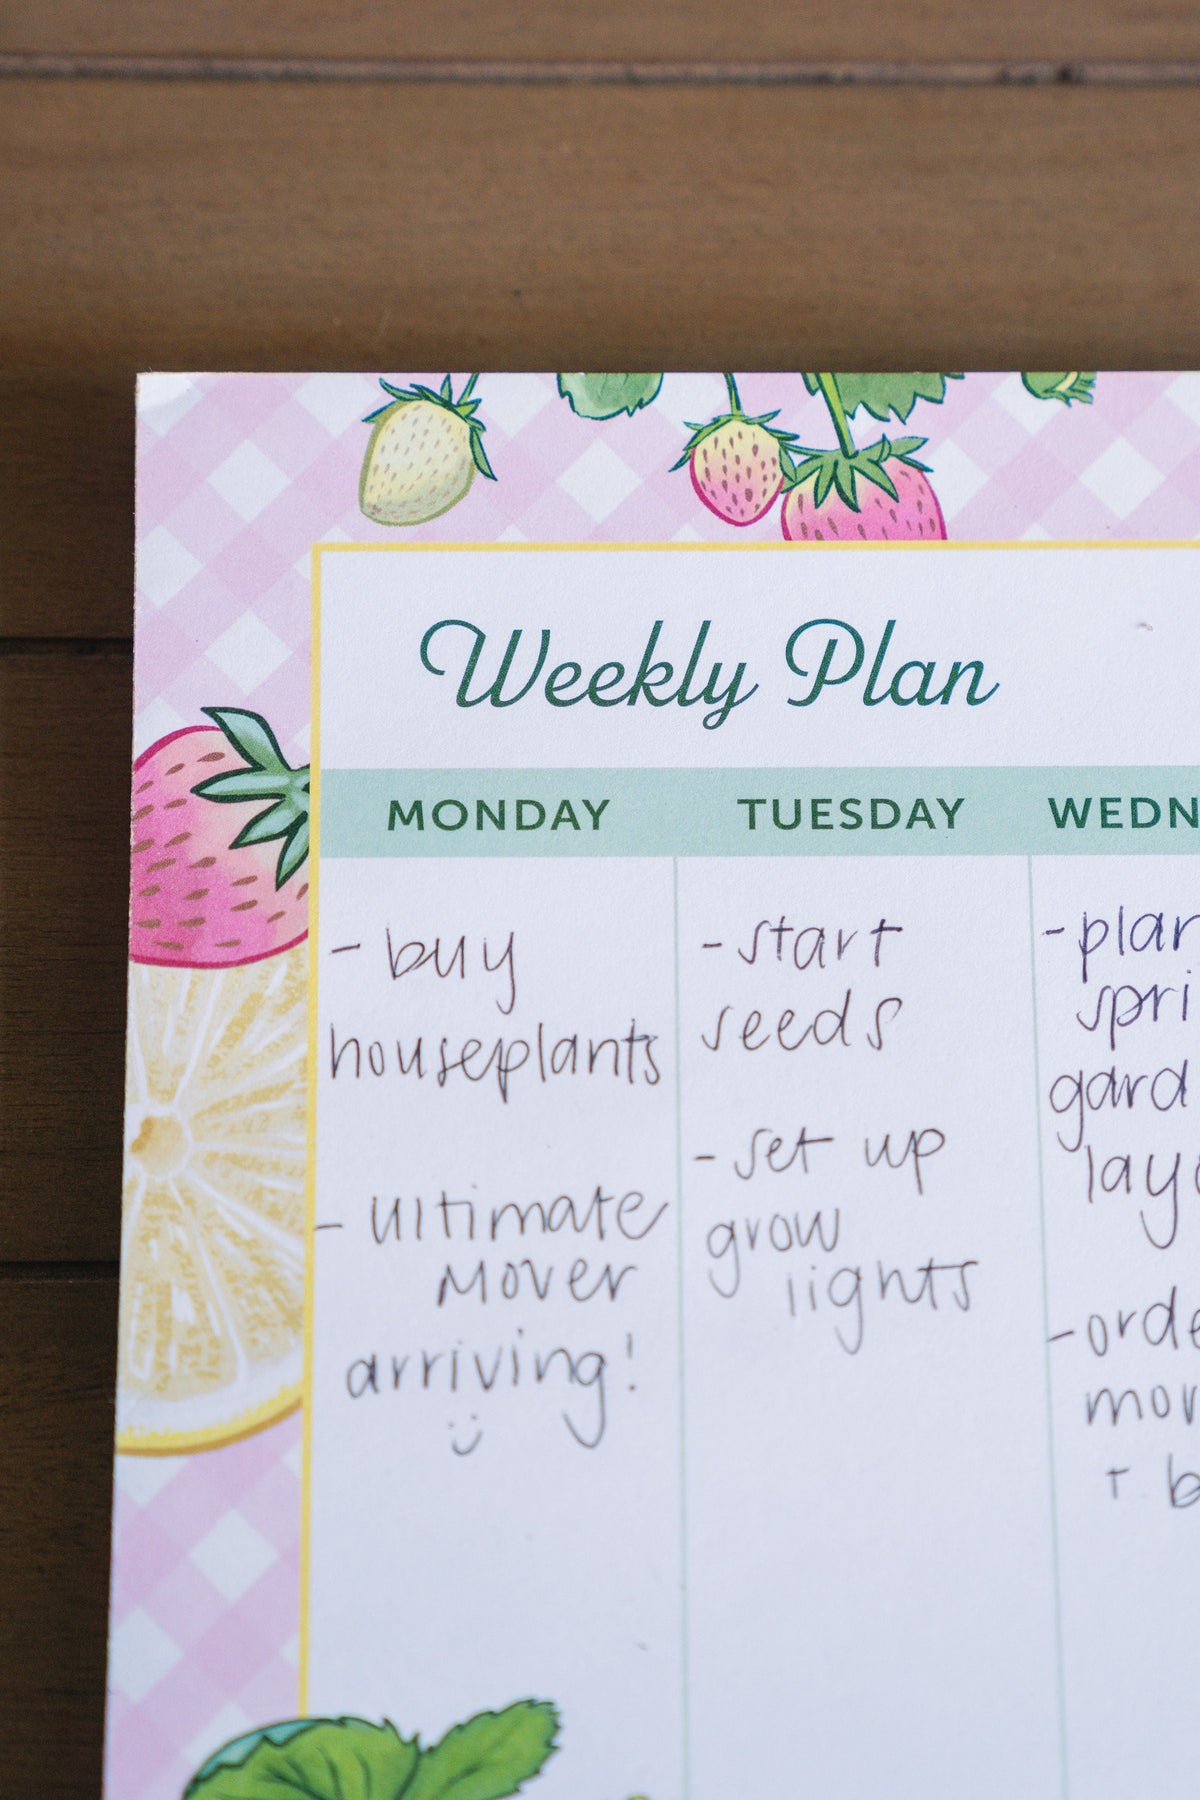 Weekly Plan
MONDAY TUESDAY WEDN
- buy
houseplants
- ultimate
mover
arriving!
- start
seeds
- set up
grow
lights
- plan
spri
gard
layo
- orde
mor
+ b